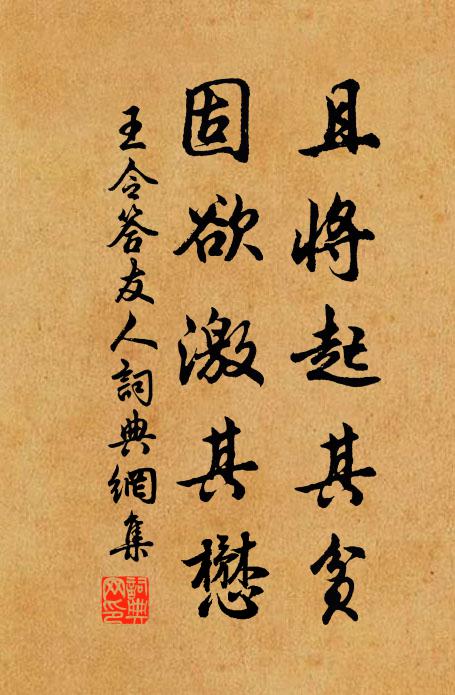 且將起其貧
固欲激其懋
王令答友人詞典網集
詞典網印